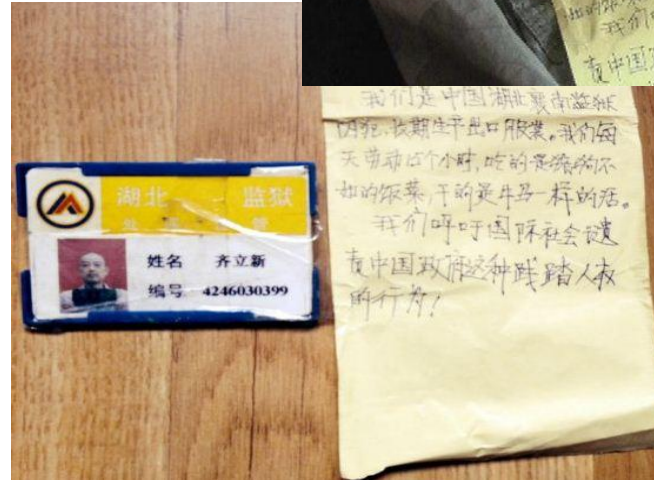 如的饭
我们
责中国
湖北 监狱
姓名 齐立新
编号 4246030399
我们是中国湖北襄南监狱
囚犯,长期生产出口服装。我们每
天劳动15个小时,吃的是猪狗不
如的饭菜,干的是牛马一样的活。
我们呼吁国际社会谴
责中国政府这种践踏人权
的行为!